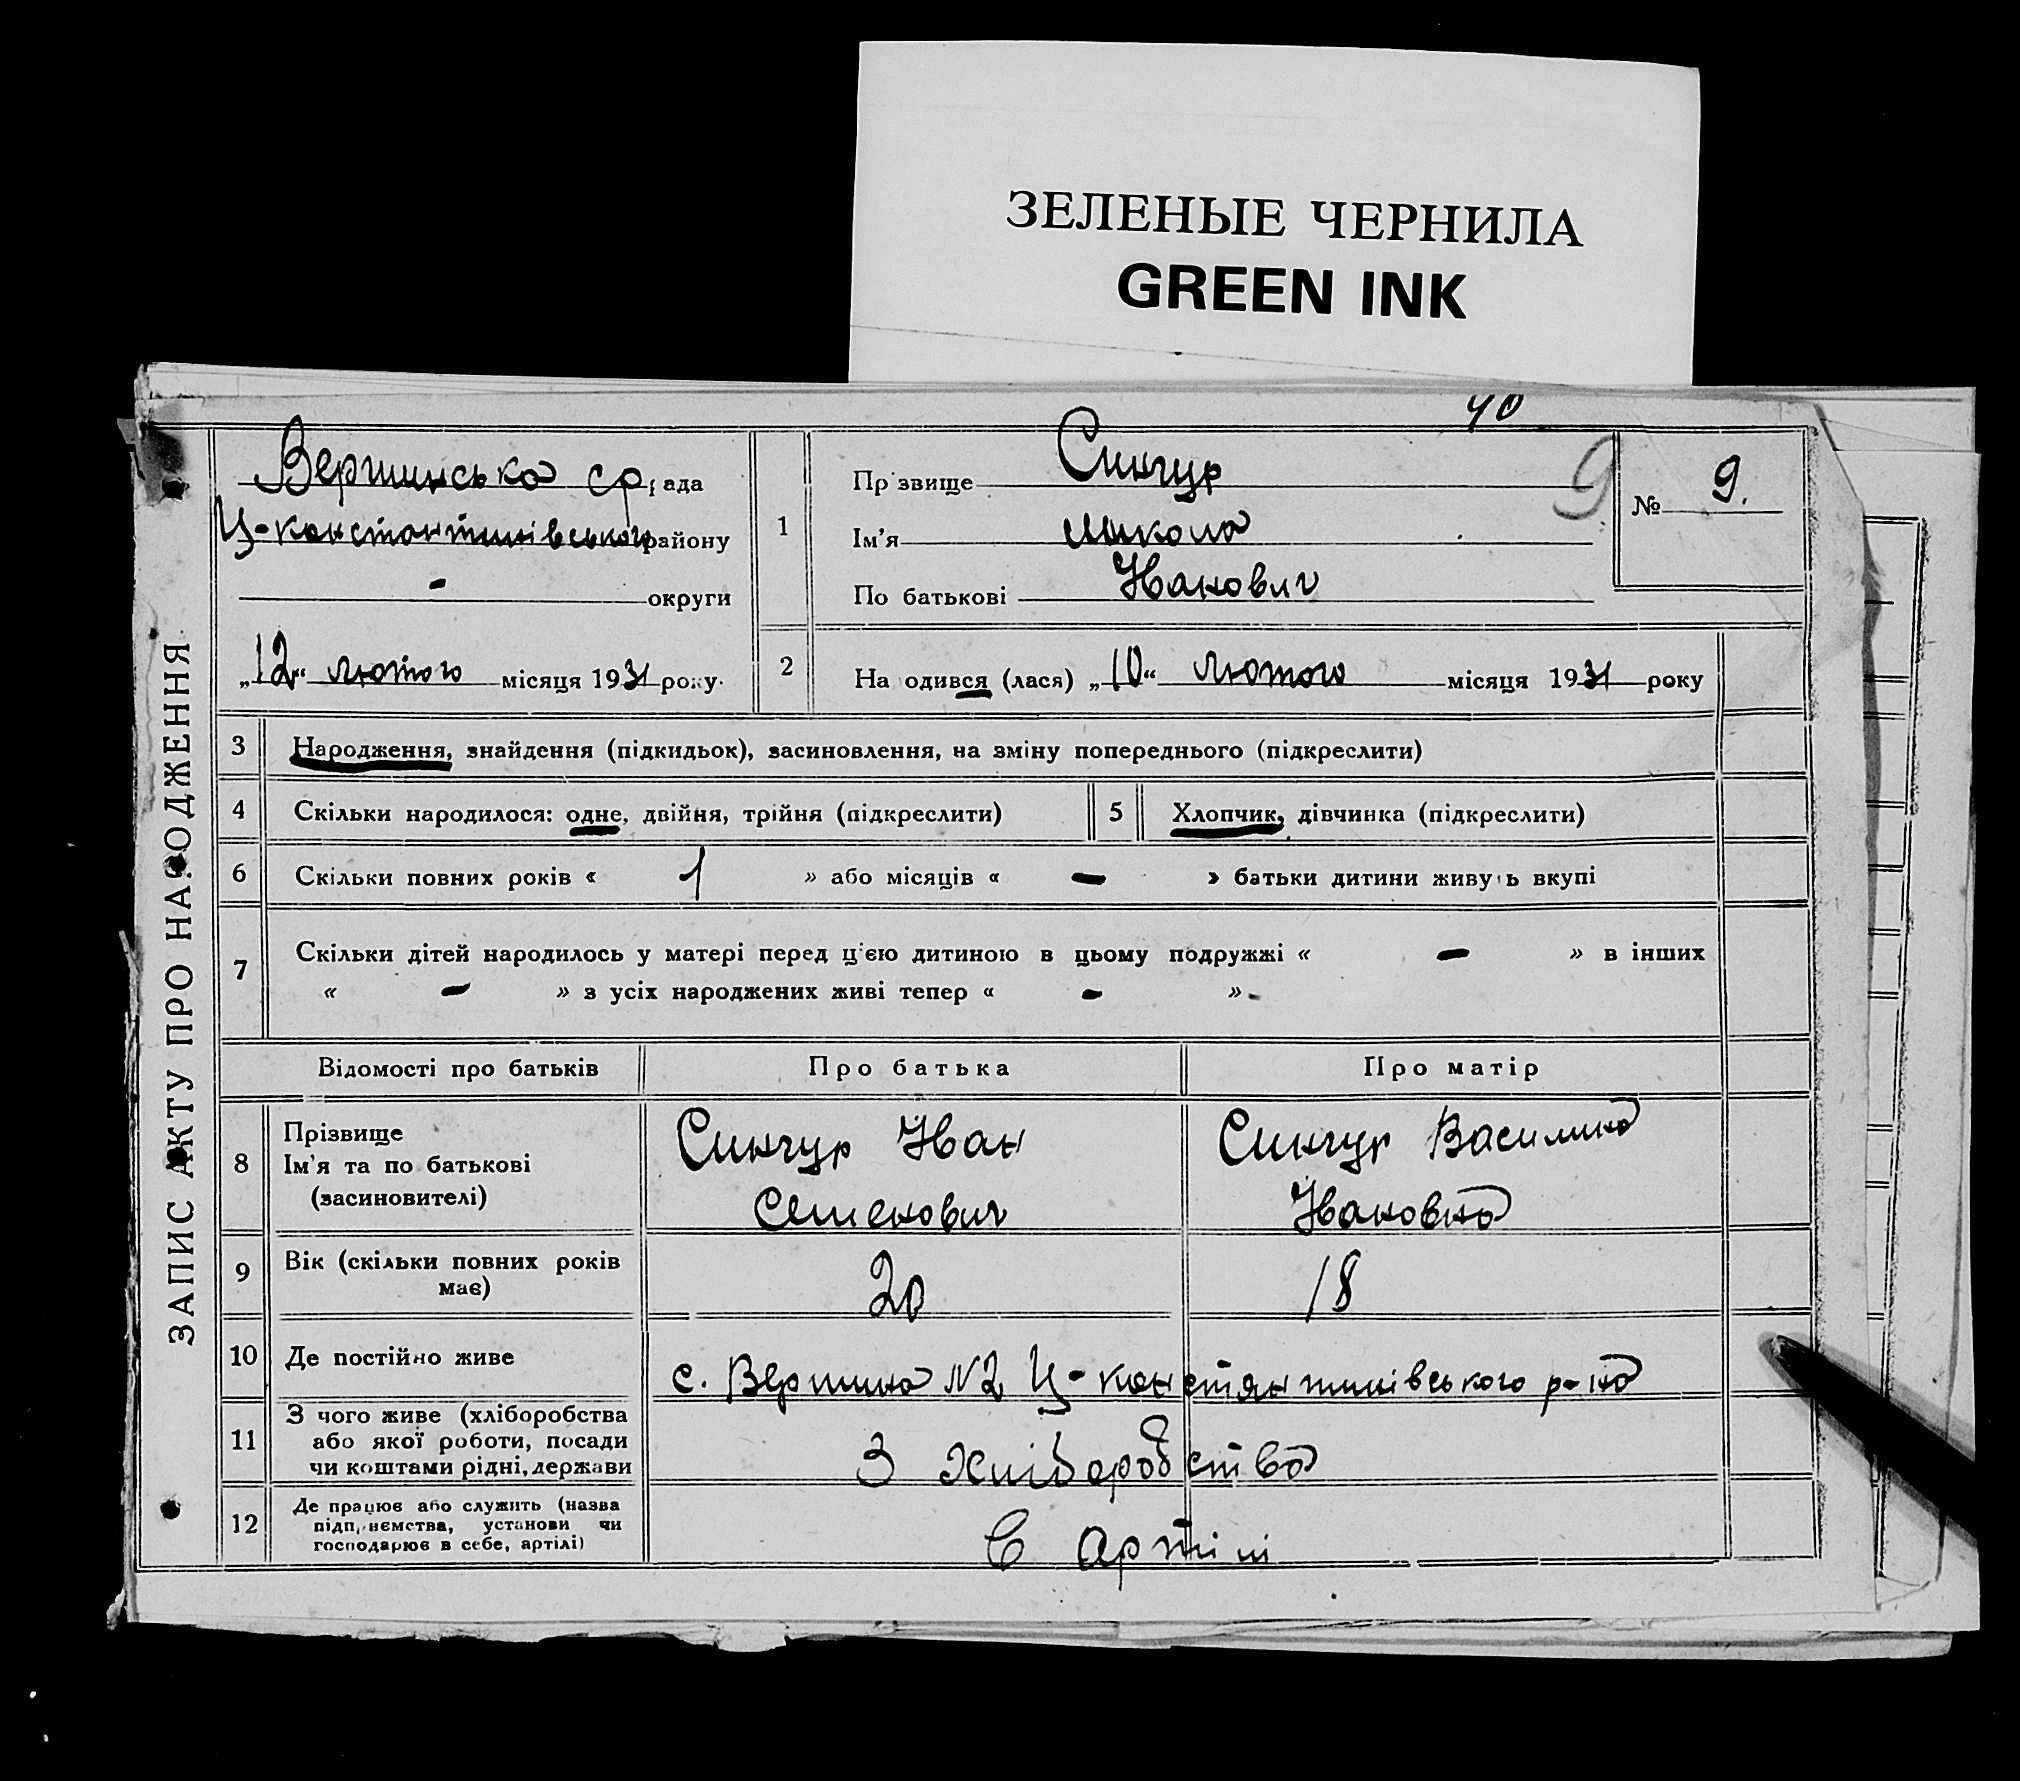 ЗЕЛЕНЫЕ ЧЕРНИЛА
GREEN INK
40
ЗАПИС АКТУ ПРО НАРОДЖЕННЯ
Вершинська ср рада
Ц-константинівського району
- округи
„12“ лютого місяця 1931 року.
1
Прізвище Сингур
Ім'я Микола
По батькові Иванович
9
№ 9.
2 Народився (лася) „10“ лютого місяця 1931 року
3 Народження, знайдення (підкидьок), засиновлення, на зміну попереднього (підкреслити)
4 Скільки народилося: одне, двійня, трійня (підкреслити) 5 Хлопчик, дівчинка (підкреслити)
6 Скільки повних років « 1 » або місяців « - » батьки дитини живуть вкупі
7 Скільки дітей народилось у матері перед ц'єю дитиною в цьому подружжі « - » в інших
« - » з усіх народжених живі тепер « - »-
Відомості про батьків Про батька Про матір
8 Прізвище
Ім'я та по батькові
(засиновителі)
Сингур Иван
Семенович
Сингур Василина
Ивановна
9 Вік (скільки повних років
має)
20 18
10 Де постійно живе с. Вершина №2 Ц-констянтинівського р-на
11 З чого живе (хліборобства
або якої роботи, посади
чи коштами рідні, держави
З хліборобства
12 Де працює або служить (назва
підприємства, установи чи
господарює в себе, артілі)
В артілі